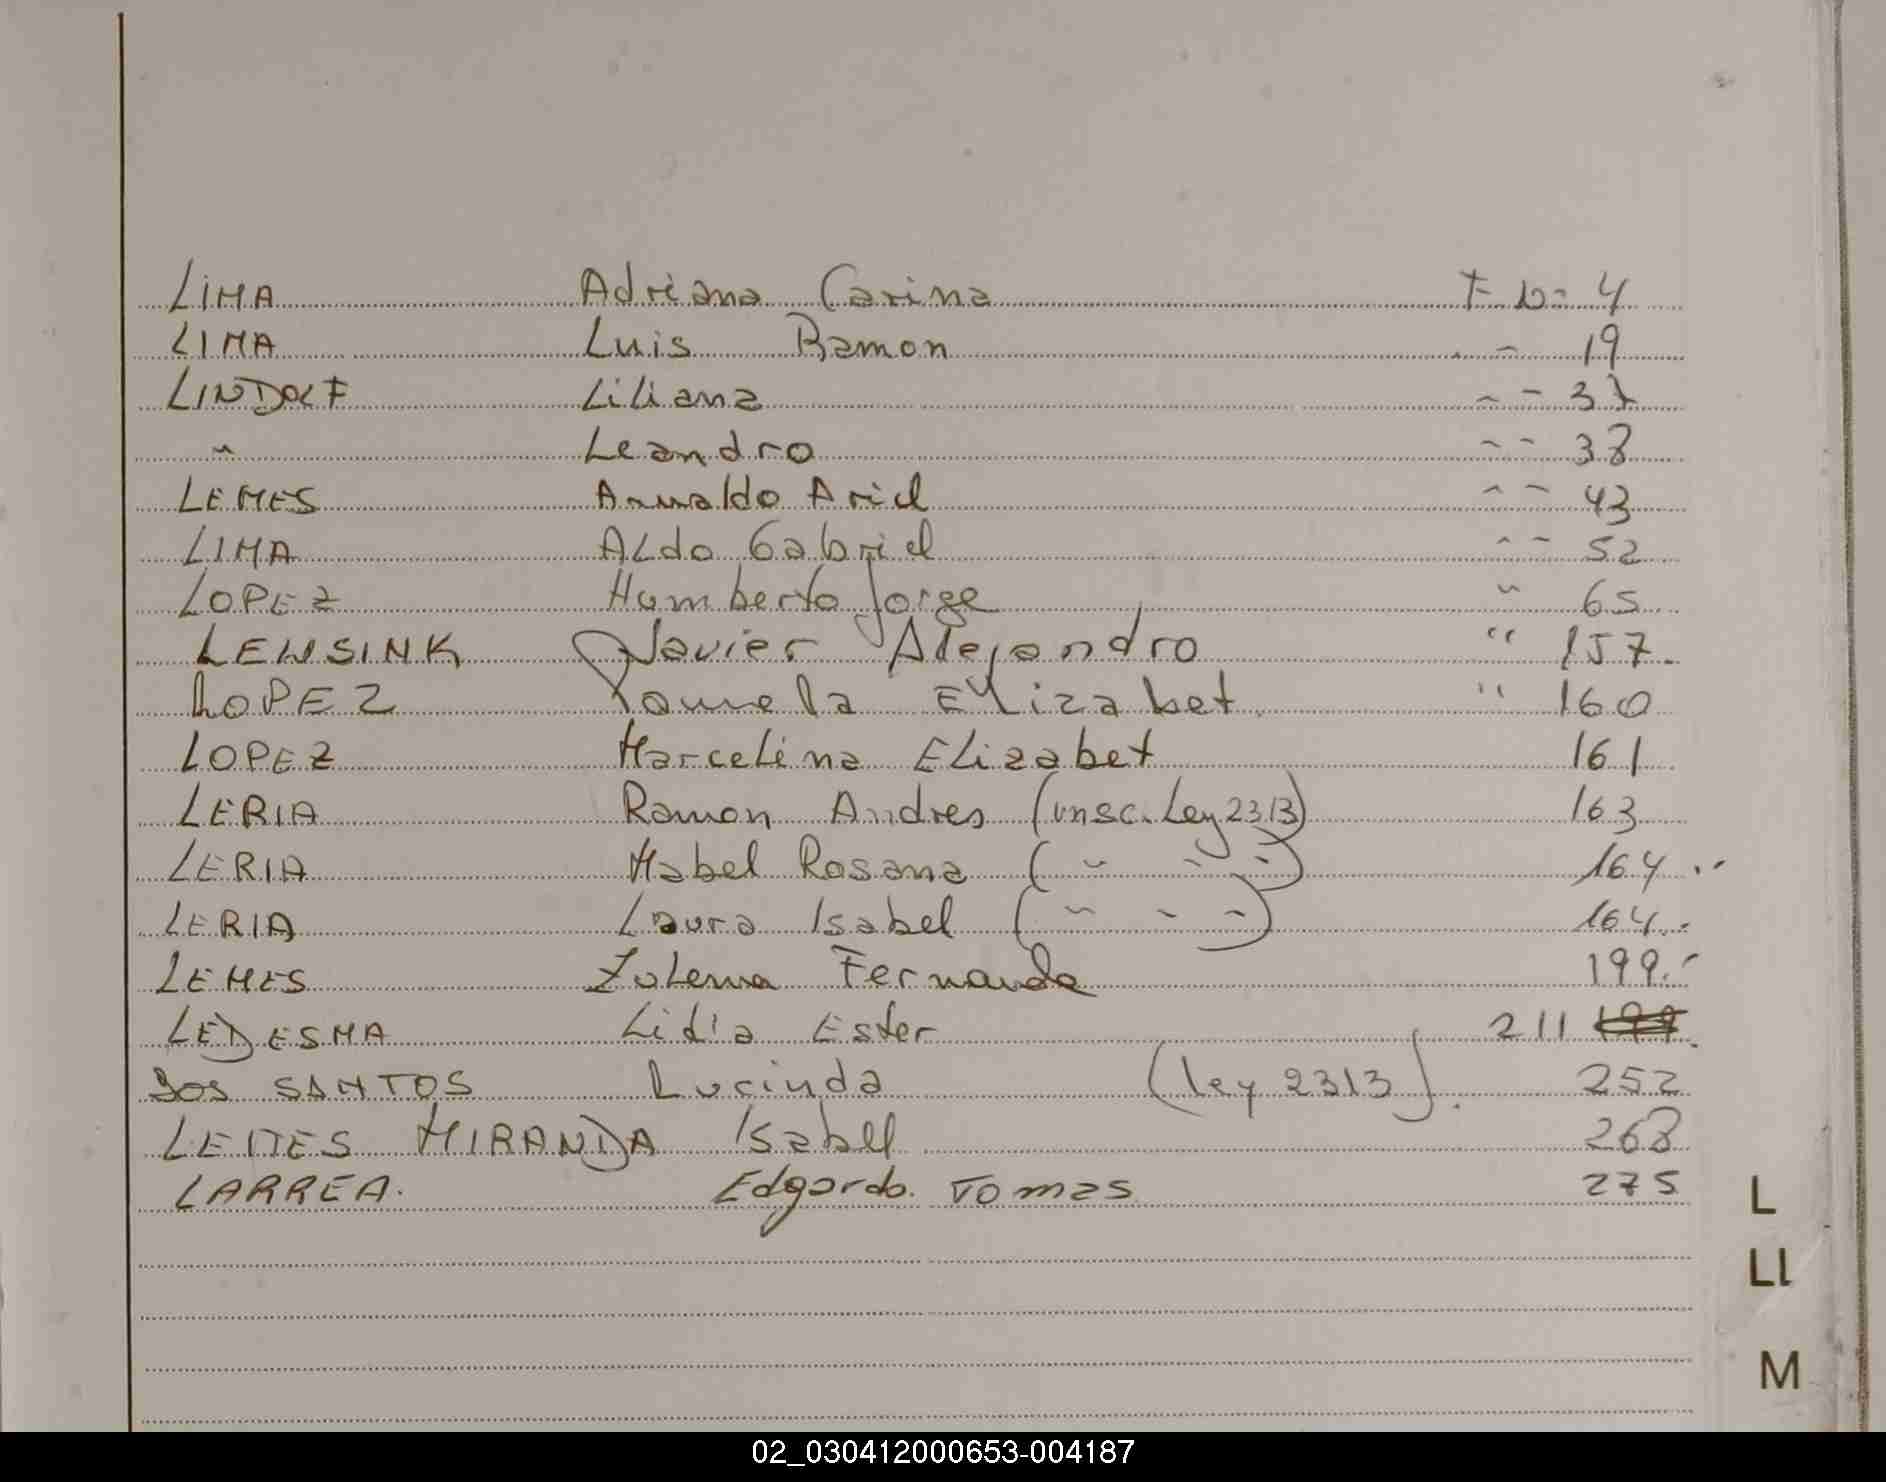 LIMA Adriana Carina F No 4
LIMA Luis Ramon " 19
LINDOLF Liliana " " 37
" Leandro " " 38
LEMES Arnaldo Ariel " " 43
LIMA ALdo Gabriel " " 52
LOPEZ Humberto Jorge " 65
LEWSINK Javier Alejandro " 157.
LOPEZ Pamela Elizabet. " 160
LOPEZ Marcelina Elizabet 161
LERIA Ramon Andres (insc. Ley 2313) 163
LERIA Mabel Rosana ( " " " ) 164
LERIA Laura Isabel ( " " " ) 164
LEMES Zulema Fernanda 199
LEDESMA Lidia Ester 211 199
DOS SANTOS Lucinda (ley 2313). 252
LEITES MIRANDA Isabel 268
LARREA. Edgardo. Tomas 275
L
LL
M
02_030412000653-004187